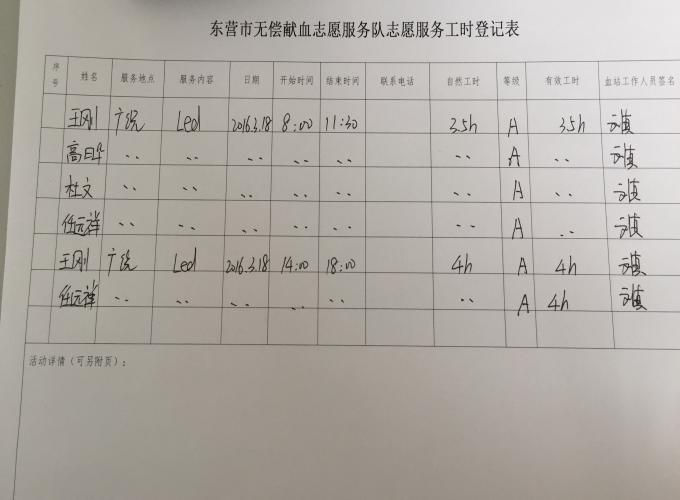 东营市无偿献血志愿服务队志愿服务工时登记表
序号 姓名 服务地点 服务内容 日期 开始时间 结束时间 联系电话 自然工时 等级 有效工时 血站工作人员签名
王刚 广饶 Led 2016.3.18 8:00 11:30 3.5h A 3.5h
高曰华 .. .. .. .. .. .. A ..
杜文 .. .. .. .. .. .. A ..
任远祥 .. .. .. .. .. .. A ..
王刚 广饶 Led 2016.3.18 14:00 18:00 4h A 4h
任远祥 .. .. .. .. .. .. A 4h
活动详情（可另附页）：